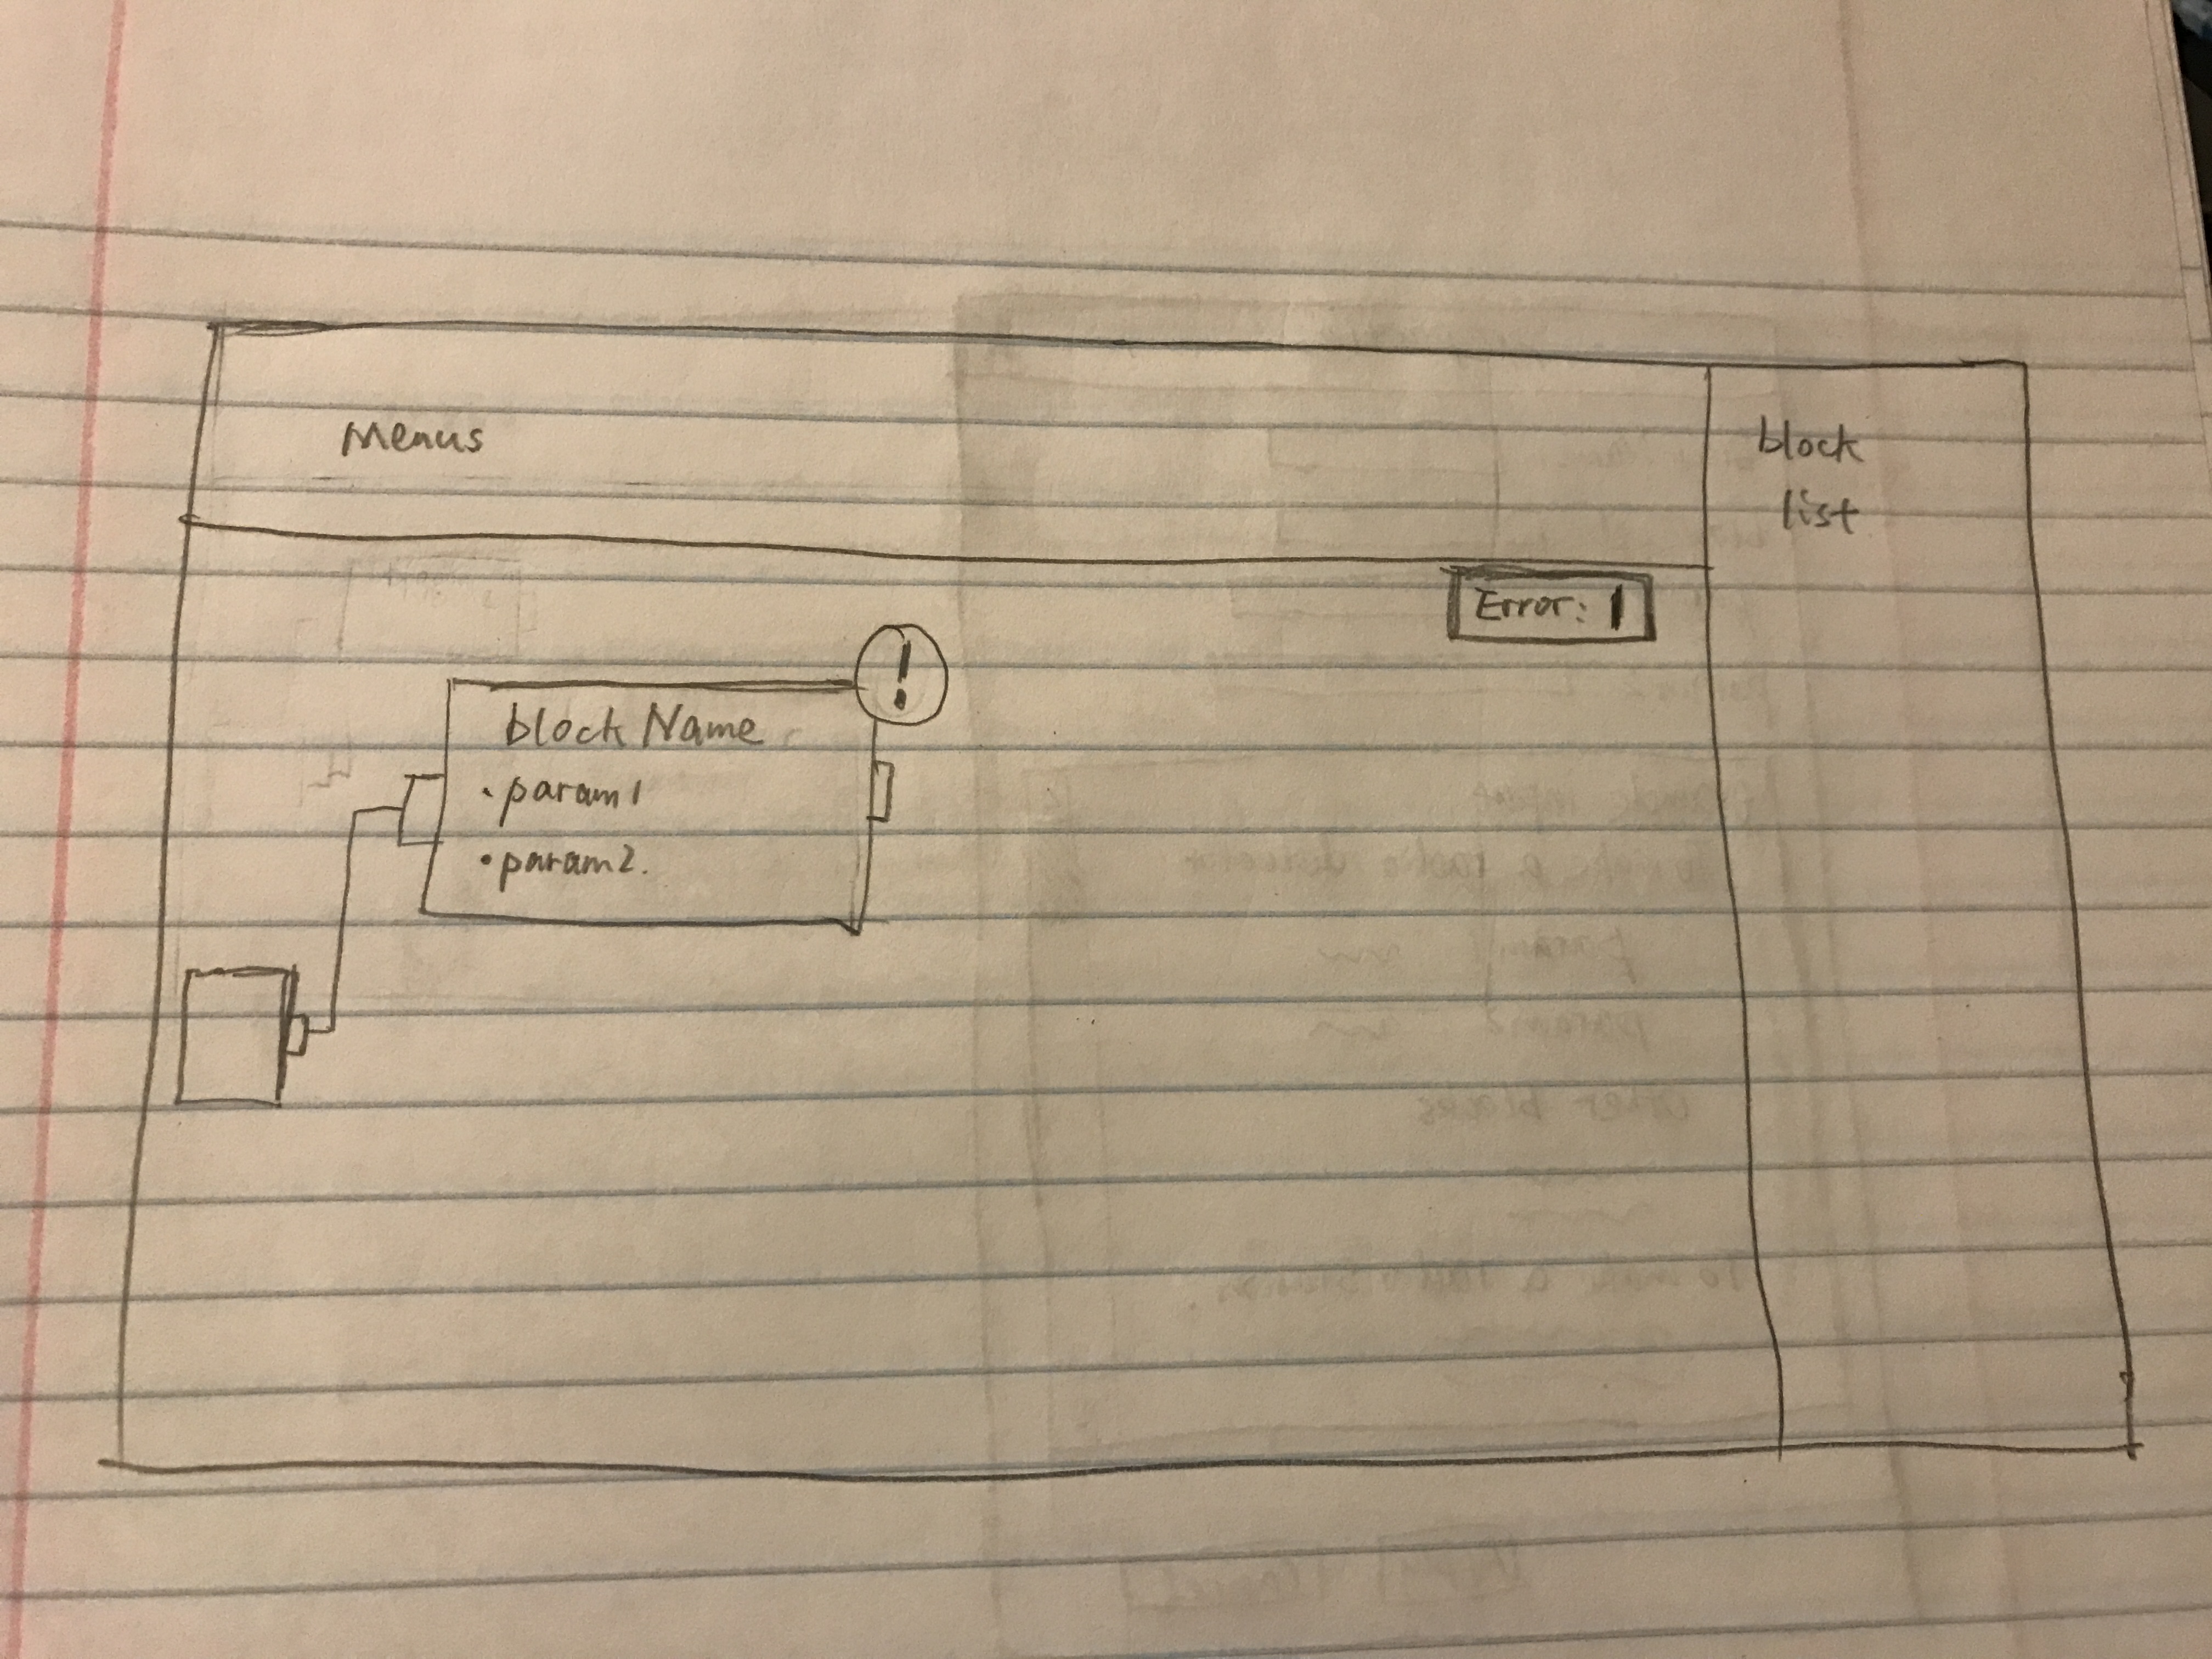 Menus
block
list
Error: 1
!
block Name
• param1
• param2.